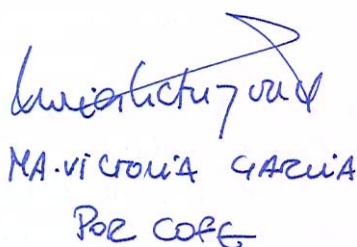 MA. VICTORIA GARCIA
POR COFE